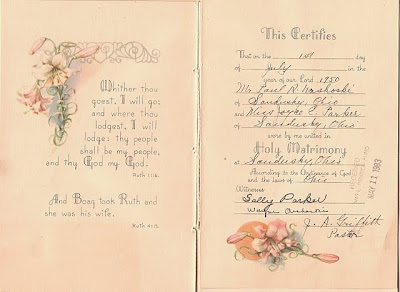 Whither thou
goest, I will go;
and where thou
lodgest, I will
lodge: thy people
shall be my people,
and thy God my God.
Ruth 1:16.
And Boaz took Ruth and
she was his wife.
Ruth 4:13.
This Certifies
That on the 1st day
of July in the
year of our Lord 1950
Mr. Paul R.
of Sandusky, Ohio
and Miss Joyce E. Parker
of Sandusky, Ohio
were by me united in
Holy Matrimony
at Sandusky, Ohio
According to the Ordinance of God
and the laws of Ohio
Witnesses
Sally Parker
J. A. Griffith
Pastor
MAY 11 1983